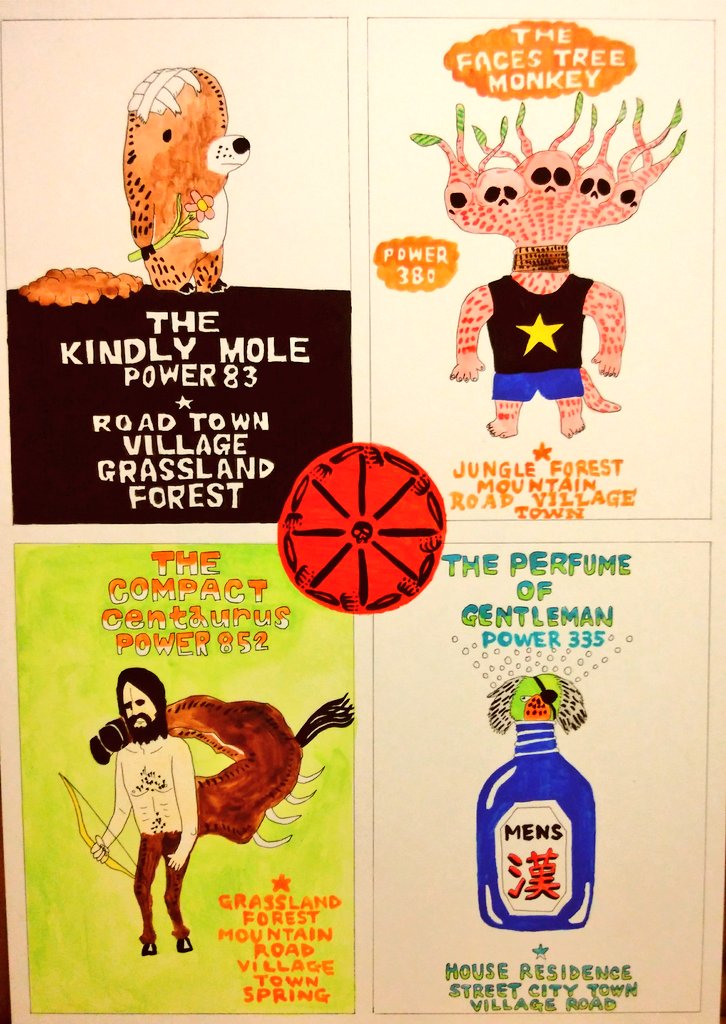 THE
KINDLY MOLE
POWER 83
ROAD TOWN
VILLAGE
GRASSLAND
FOREST
THE
FACES TREE
MONKEY
POWER
380
JUNGLE FOREST
MOUNTAIN
ROAD VILLAGE
TOWN
THE
COMPACT
centaurus
POWER 852
GRASSLAND
FOREST
MOUNTAIN
ROAD
VILLAGE
TOWN
SPRING
THE PERFUME
OF
GENTLEMAN
POWER 335
MENS
漢
HOUSE RESIDENCE
STREET CITY TOWN
VILLAGE ROAD